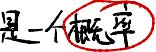 是一个概率